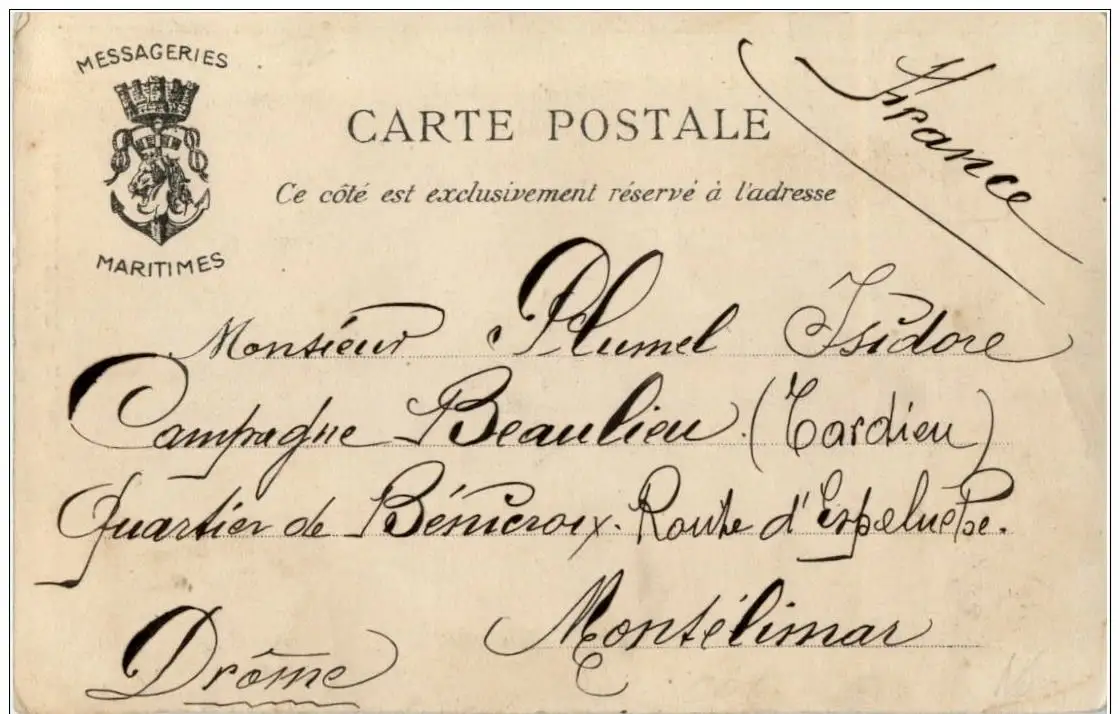 MESSAGERIES
MARITIMES
CARTE POSTALE
Ce côté est exclusivement réservé à l'adresse
France
Monsieur Plumel Isidore
Campagne Beaulieu (Tardieu)
Quartier de Bénicroix. Route d'Espeluche.
Montélimar
Drôme
16